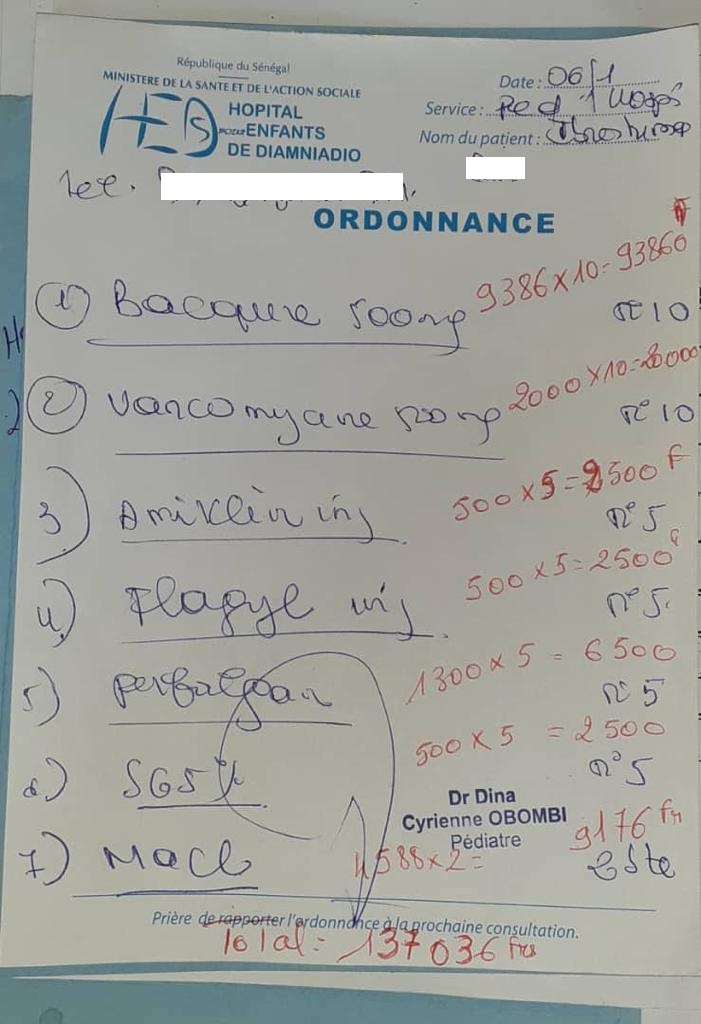 République du Sénégal
MINISTERE DE LA SANTE ET DE L'ACTION SOCIALE
HEDS HOPITAL
POUR ENFANTS
DE DIAMNIADIO
Date : 06/1
Service : Ped
Nom du patient :
ORDONNANCE
1) Bacquire 500mg
9386 x 10 = 93860 F
N° 10
2) Vancomycine 500mg
2000 x 10 = 20000
N° 10
3) Amiklin inj
500 x 5 = 2500 F
N° 5
4) Flagyl inj
500 x 5 = 2500 F
N° 5
5) perfalgan
1300 x 5 = 6500
N° 5
6) SG5%
500 x 5 = 2500
N° 5
Dr Dina
Cyrienne OBOMBI
Pédiatre
7) Nacl
4588 x 2 =
9176 frs
Prière de rapporter l'ordonnance à la prochaine consultation.
Total = 137036 frs